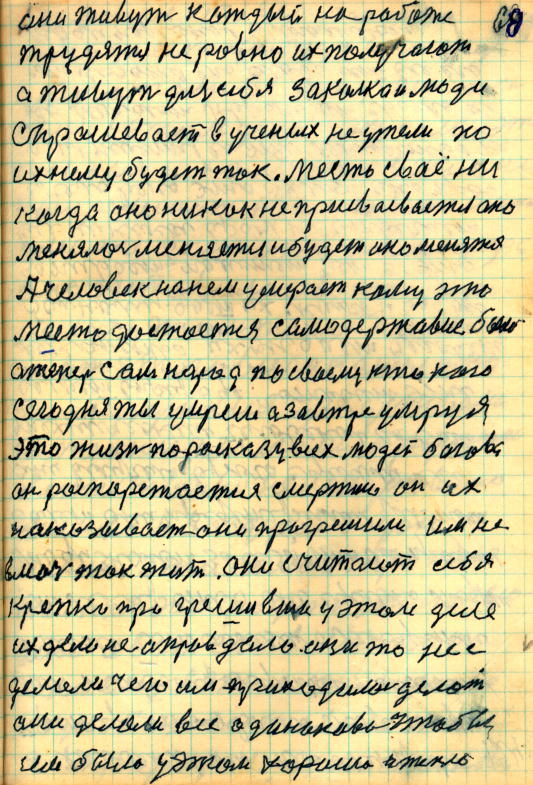 они живут каждый на работе 69
трудятся не ровно их получают
а живут для себя за какой люди
спрашевает в ученых не ужели по
ихнему будет так. Место сваё ни
когда оно никак не присваевается оно
менялось меняется и будет оно менятся
А человек на нем умерает кому это
место достоется самодержавие было
а тепер сам народ по своему кто кого
сегодня ты умреш а завтре умру я
это жизн по росказу всех людей богова
он роспоретается смертию он их
наказывает они прогрешили им не
в мог так жит. они считают себя
крепко прогрешивши у этом деле
их дело не оправдало они то не е
делали чего им приходилось делат
они делали все одинаково чтобы
им было у этом хорошо и тепло